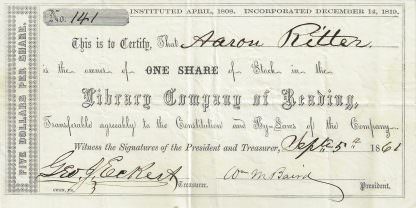 No. 141
INSTITUTED APRIL, 1808. INCORPORATED DECEMBER 12, 1819.
FIVE DOLLARS PER SHARE.
This is to Certify, That Aaron Ritter.
is the owner of ONE SHARE of Stock in the
Library Company of Reading,
Transferable agreeably to the Constitution and By-Laws of the Company.
Witness the Signatures of the President and Treasurer, Sept. 5th 1861
Geo. J. Eckert Treasurer. Wm M Baird President.